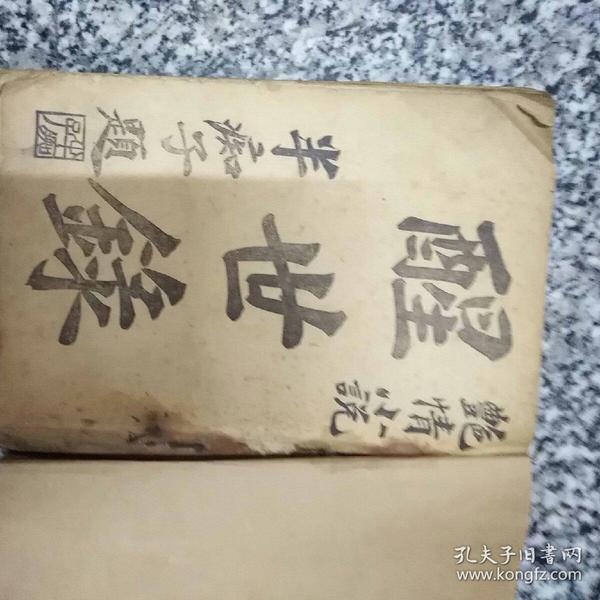 艷情小説
醒世錄
半痴子題
孔夫子旧书网
www.kongfz.com